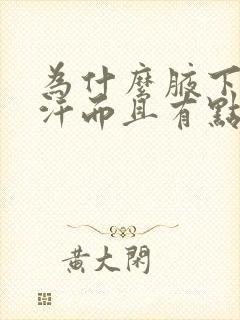 為什麼腋下
汗而且有點
黃大閑